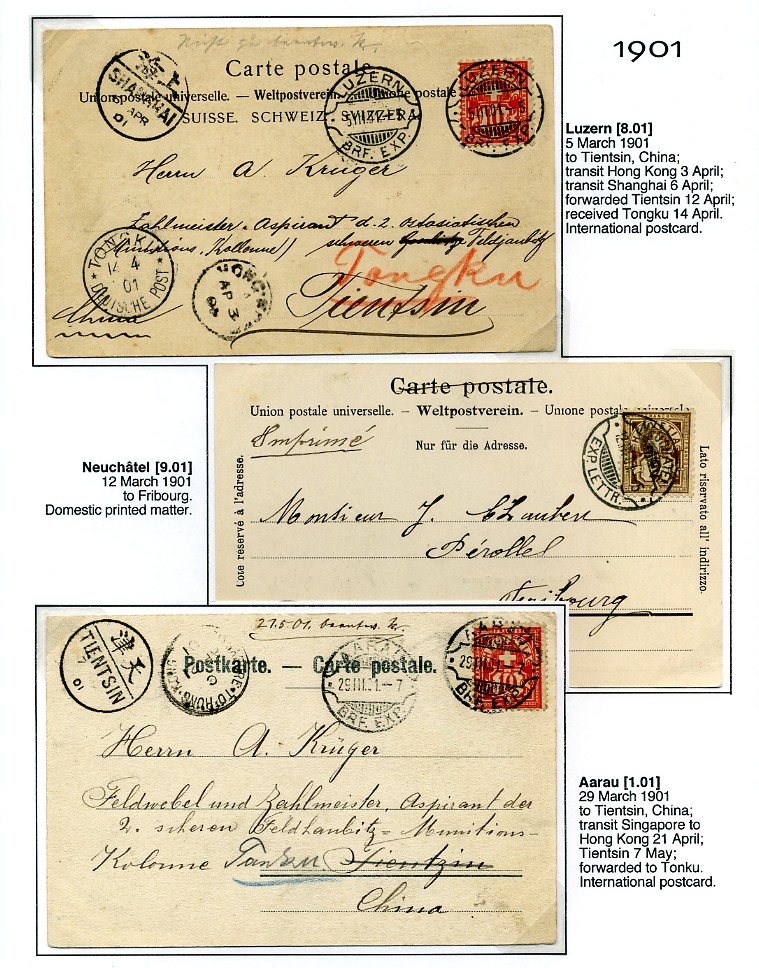 1901
Nicht zu beantw. K.
Carte postale.
Union postale universelle. — Weltpostverein. — Unione postale
SUISSE. SCHWEIZ. SVIZZERA.
SHANGHAI
APR
01
LUZERN
5.III.01.-5
BRF. EXP.
LUZERN
BRF. EXP.
Herrn A. Krüger
Zahlmeister-Aspirant d. 2. ostasiatischen
Munitions, Kollonne schweren Feldhaubitz
Tongku
Tientsin
China
TONGKU
14 4
01
DEUTSCHE POST
HONG
AP 3
Luzern [8.01]
5 March 1901
to Tientsin, China;
transit Hong Kong 3 April;
transit Shanghai 6 April;
forwarded Tientsin 12 April;
received Tongku 14 April.
International postcard.
Carte postale.
Union postale universelle. — Weltpostverein. — Unione postale universale
Imprimé
Nur für die Adresse.
Cote réservé à l'adresse.
Lato riservato all' indirizzo.
EXP. LETTR.
Monsieur J.
Pérolles
Fribourg
Neuchâtel [9.01]
12 March 1901
to Fribourg.
Domestic printed matter.
21.5.01. beantw. K.
Postkarte. — Carte postale.
天津
TIENTSIN
7
01
AARAU
29.III.01.–7
BRF. EXP.
AARAU
29.III.01
BRF. EXP.
10
Herrn A. Krüger
Feldwebel und Zahlmeister, Aspirant der
2. scheren Feldhaubitz = Munitions-
Kolonne Tanku Tientzin
China
Aarau [1.01]
29 March 1901
to Tientsin, China;
transit Singapore to
Hong Kong 21 April;
Tientsin 7 May;
forwarded to Tonku.
International postcard.